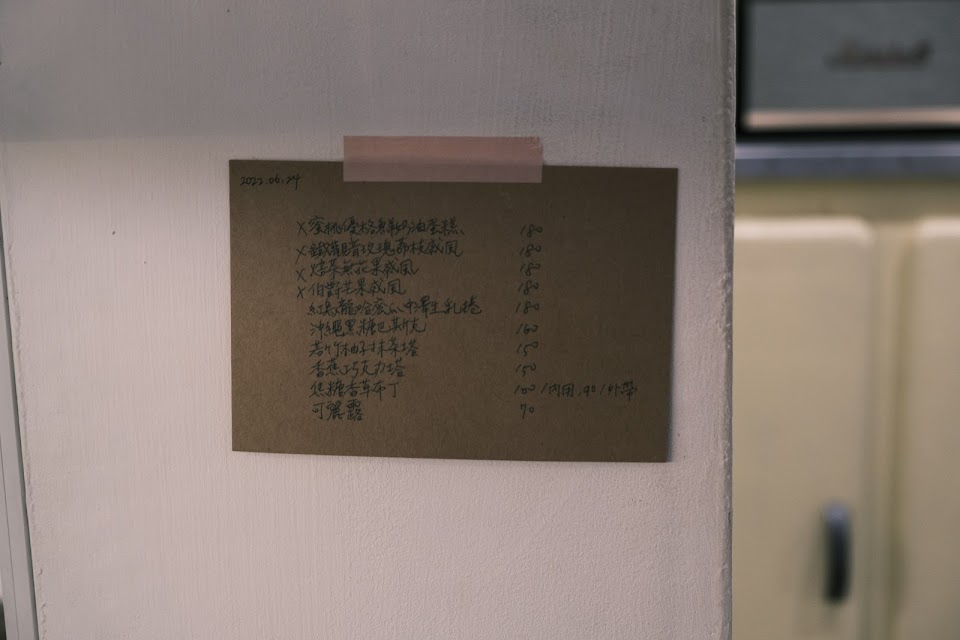 2022.06.24
X 蜜桃優格鮮奶油蛋糕、 180
X 鐵觀音玫瑰荔枝戚風 180
X 焙茶無花果戚風 180
X 伯爵芒果戚風 180
紅烏龍哈蜜瓜中澤生乳捲 180
沖繩黑糖巴斯克 160
若竹柚子抹茶塔 150
香蕉巧克力塔 150
焦糖香草布丁 100/內用,90/外帶
可麗露 70
Marshall